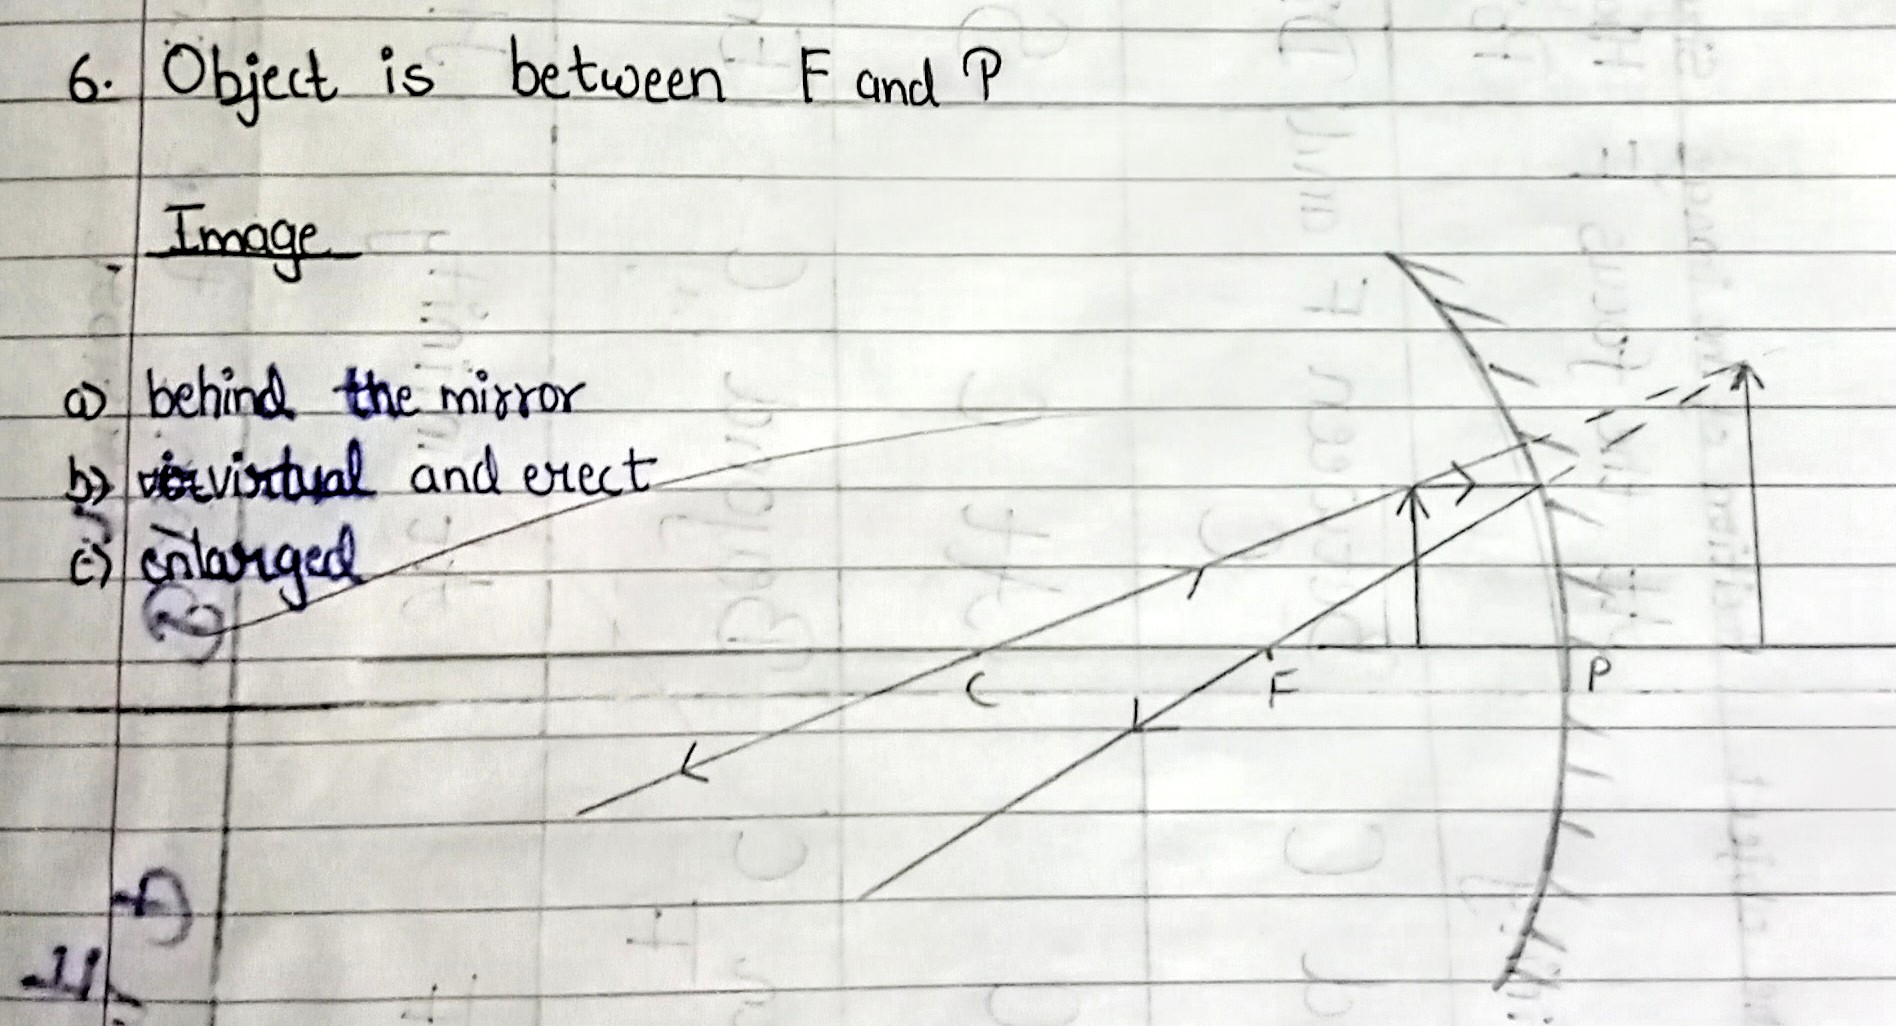 6. Object is between F and P
Image
a) behind the mirror
b) virtual and erect
c) enlarged
C F P